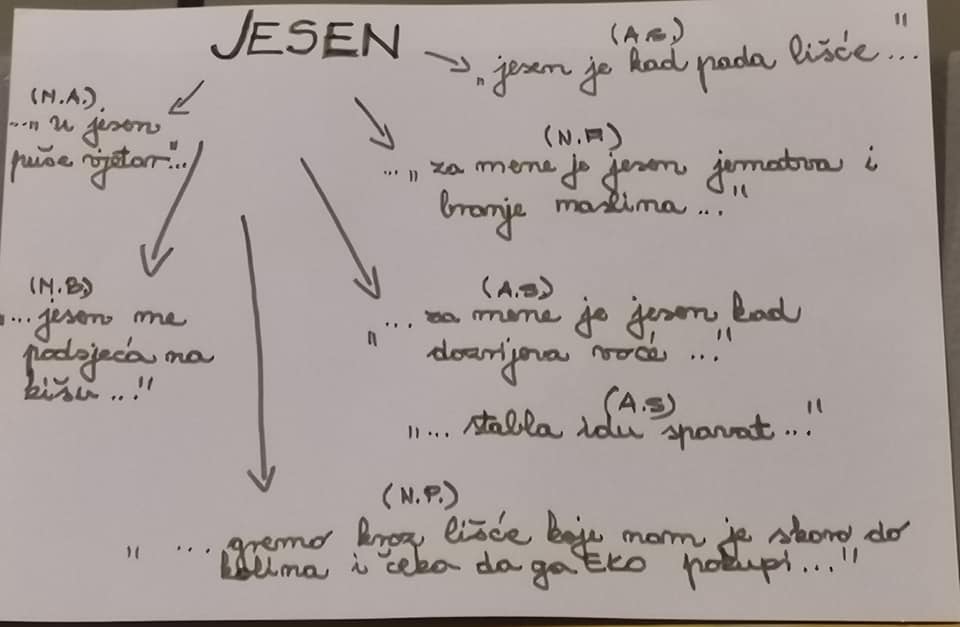 JESEN
(A.B.)
„jesen je kad pada lišće..."
(N.A.)
...„u jesen
puše vjetar"...
(N.A)
...„za mene je jesen jematva i
branje maslina..."
(N.B.)
„...jesen me
podsjeća na
kišu..."
(A.B)
„...za mene je jesen kad
dozrijeva voće..."
(A.S)
„...stabla idu spavat..."
(N.P.)
„...gremo kroz lišće koje nam je skoro do
kolina i čeka da ga EKO pokupi..."